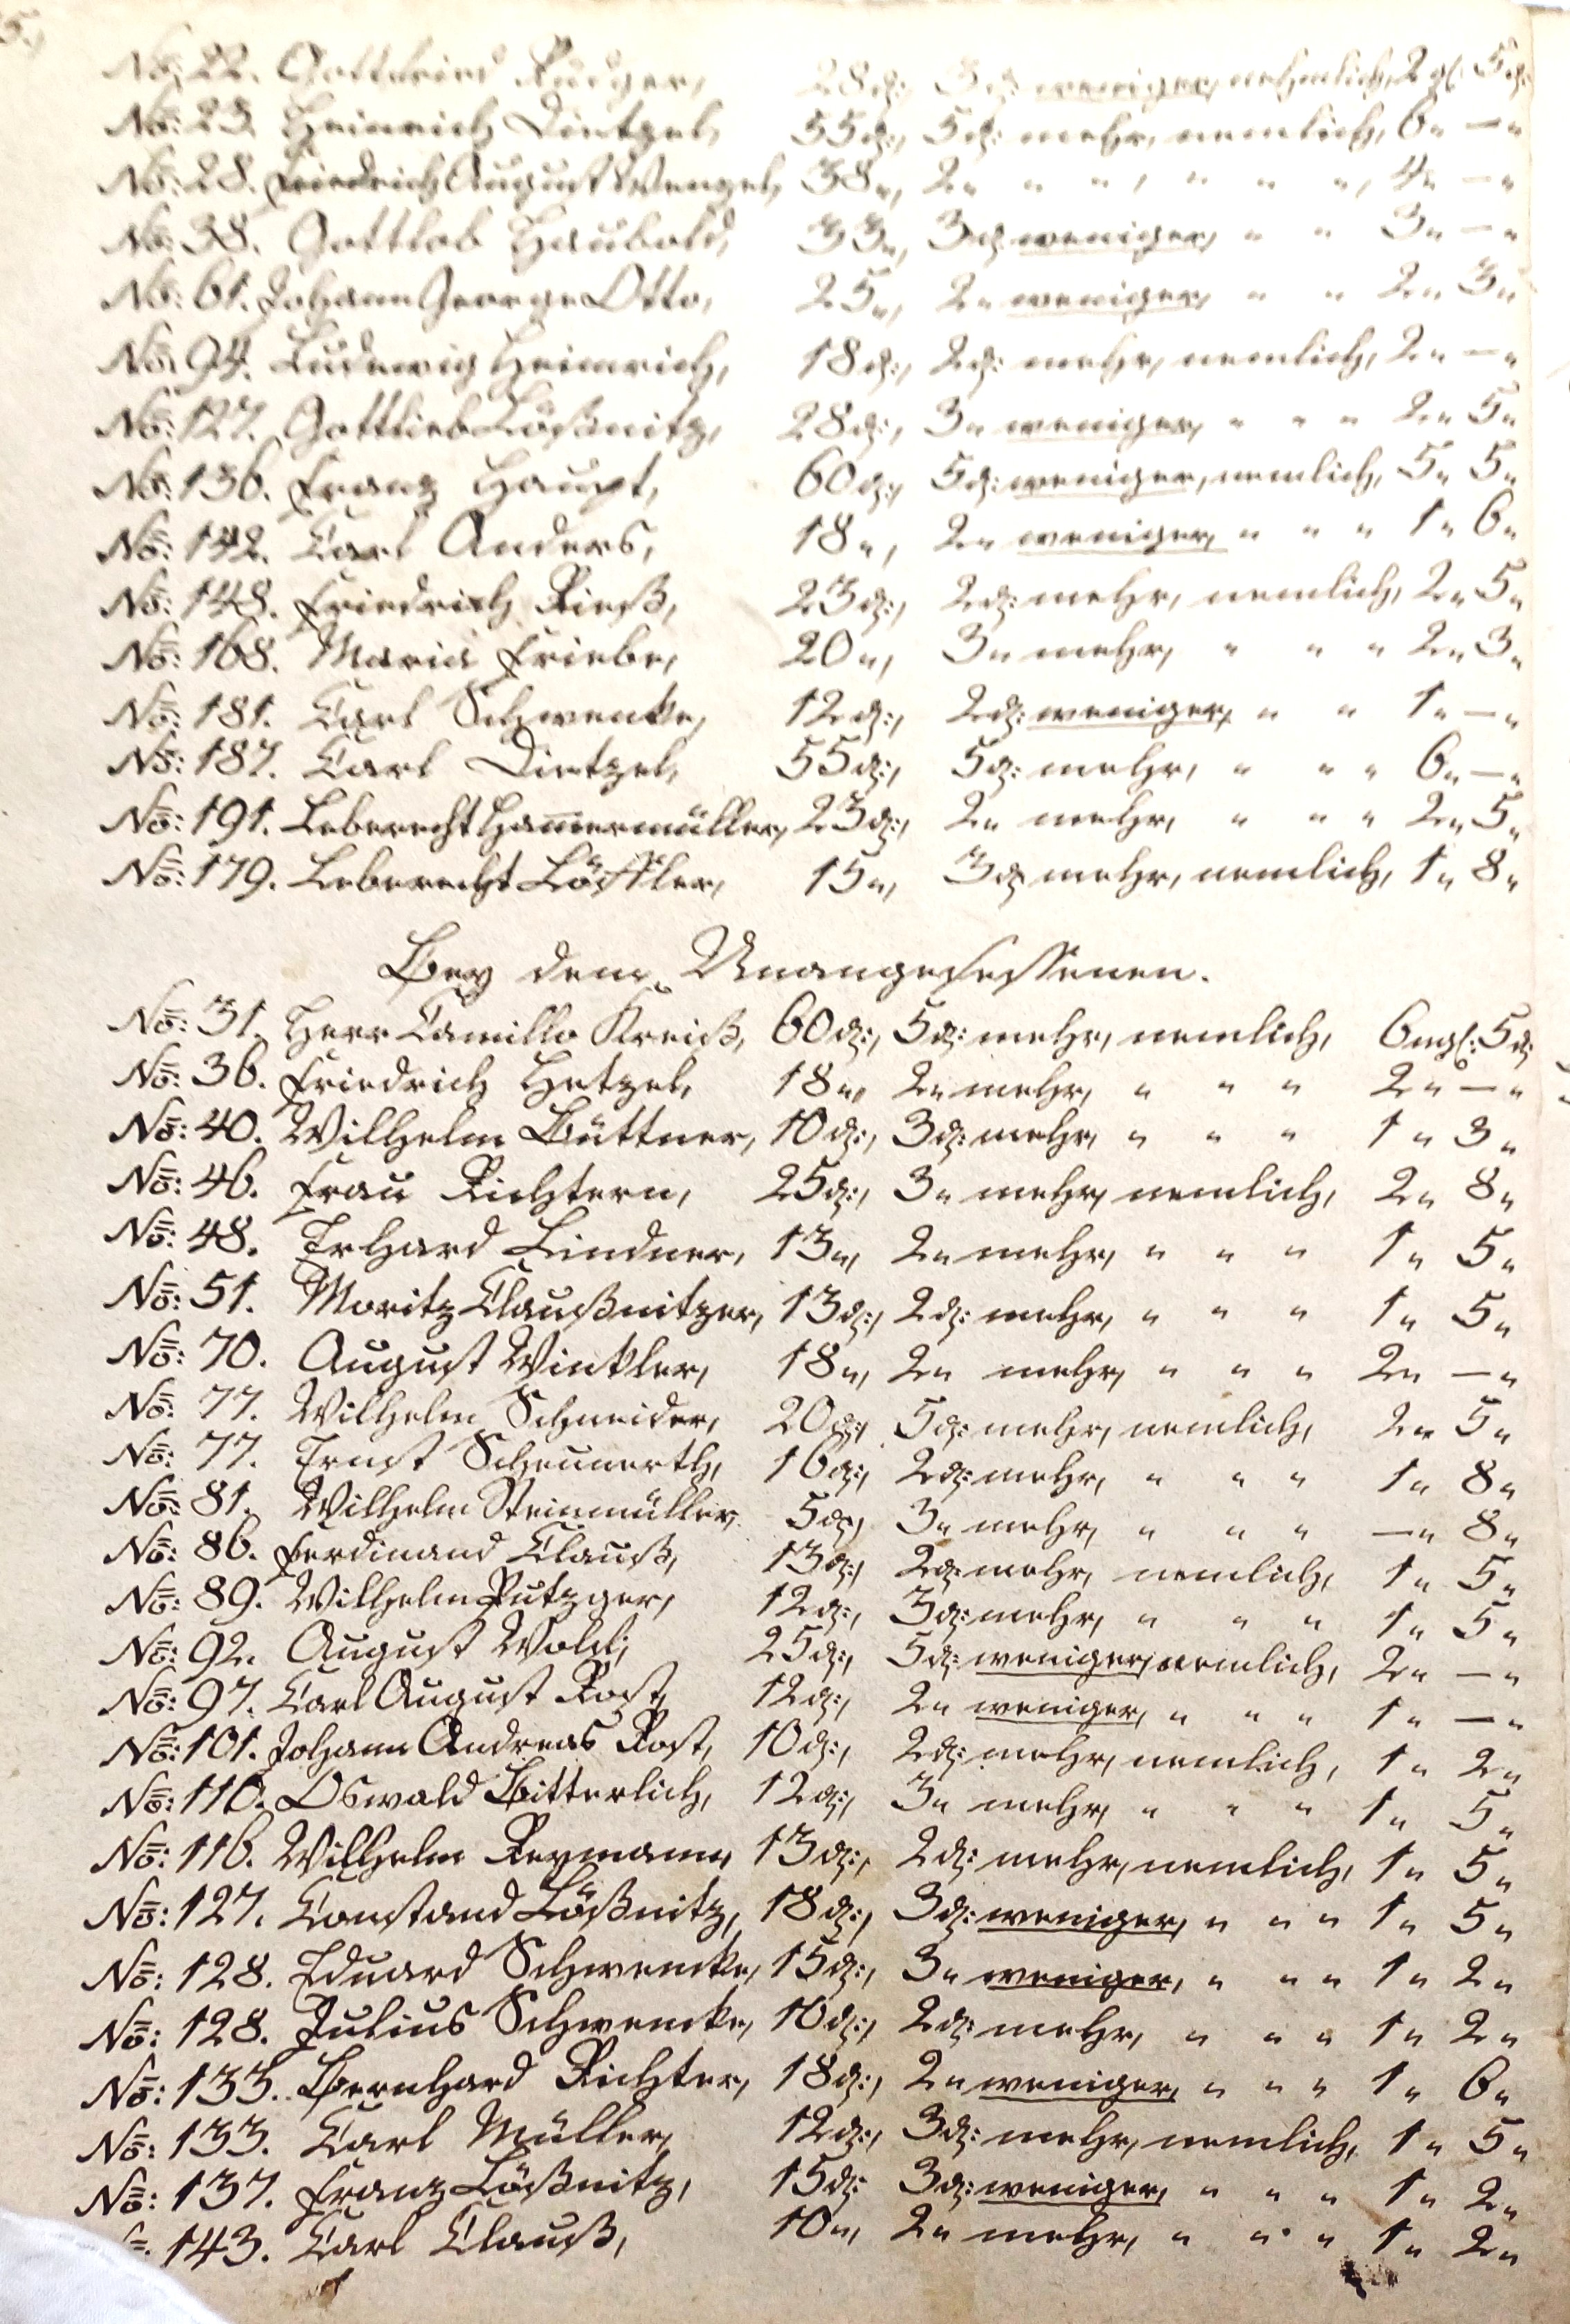 No: 22. Gottfried Rudger, 28 d:, 3 d: weniger, nehmlich, 2 gl: 5 d:
No: 23. Heinrich Dietzel, 55 d:, 5 d: mehr, nemlich, 6 „ — „
No: 28. Friedrich August Wenzel, 38 „, 2 „ „ „, „ „ „, 4 „ — „
No: 38. Gottlob Haubold, 33 „, 3 d: weniger, „ „ 3 „ — „
No: 61. Johann George Otto, 25 „, 2 „ weniger, „ „ 2 „ 3 „
No: 94. Ludewig Heimrich, 18 d:, 2 d: mehr, nemlich, 2 „ — „
No: 127. Gottlieb Lößnitz, 28 d:, 3 „ weniger, „ „ „ 2 „ 5 „
No: 136. Franz Haupt, 60 d:, 5 d: weniger, nemlich, 5 „ 5 „
No: 142. Carl Anders, 18 „, 2 „ weniger, „ „ „ 1 „ 6 „
No: 148. Friedrich Rieß, 23 d:, 2 d: mehr, nemlich, 2 „ 5 „
No: 168. Maria Friebe, 20 „, 3 „ mehr, „ „ „ 2 „ 3 „
No: 181. Carl Schwenke, 12 d:, 2 d: weniger, „ „ 1 „ — „
No: 187. Carl Dietzel, 55 d:, 5 d: mehr, „ „ „ 6 „ — „
No: 191. Leberecht Ham̅ermüller, 23 d:, 2 „ mehr, „ „ „ 2 „ 5 „
No: 179. Leberecht Löffler, 15 „, 3 d: mehr, nemlich, 1 „ 8 „
Bey dem Unangesessenen.
No: 31. Herr Camillo Kreiß, 60 d:, 5 d: mehr, nemlich, 6 ngl: 5 d:
No: 36. Friedrich Hetzel, 18 „, 2 „ mehr, „ „ „ 2 „ — „
No: 40. Wilhelm Büttner, 10 d:, 3 d: mehr, „ „ „ 1 „ 3 „
No: 46. Frau Richtern, 25 d:, 3 „ mehr, nemlich, 2 „ 8 „
No: 48. Erhard Lindner, 13 „, 2 „ mehr, „ „ „ 1 „ 5 „
No: 51. Moritz Claußnitzer, 13 d:, 2 d: mehr, „ „ „ 1 „ 5 „
No: 70. August Winkler, 18 „, 2 „ mehr, „ „ „ 2 „ — „
No: 77. Wilhelm Schneider, 20 d:, 5 d: mehr, nemlich, 2 „ 5 „
No: 77. Ernst Scheunerth, 16 d:, 2 d: mehr, „ „ „ 1 „ 8 „
No: 81. Wilhelm Steinmüller 5 d:, 3 „ mehr, „ „ „ — „ 8 „
No: 86. Ferdinand Clauß, 13 d:, 2 d: mehr, nemlich, 1 „ 5 „
No: 89. Wilhelm Putzger, 12 d:, 3 d: mehr, „ „ „ 1 „ 5 „
No: 92. August 25 d:, 5 d: weniger, nemlich, 2 „ — „
No: 97. Carl August Rost, 12 d:, 2 „ weniger, „ „ „ 1 „ — „
No: 101. Johann Andreas Rost, 10 d:, 2 d: mehr, nemlich, 1 „ 2 „
No: 110. Oswald Bitterlich, 12 d:, 3 „ mehr, „ „ „ 1 „ 5 „
No: 116. Wilhelm Reymann, 13 d:, 2 d: mehr, nemlich, 1 „ 5 „
No: 127. Constand Lößnitz, 18 d:, 3 d: weniger, „ „ „ 1 „ 5 „
No: 128. Eduard Schwencke, 15 d:, 3 „ weniger, „ „ „ 1 „ 2 „
No: 128. Julius Schwencke, 10 d:, 2 d: mehr, „ „ „ 1 „ 2 „
No: 133. Bernhard Richter, 18 d:, 2 „ weniger, „ „ „ 1 „ 6 „
No: 133. Carl Müller, 12 d:, 3 d: mehr, nemlich, 1 „ 5 „
No: 137. Franz Lößnitz, 15 d: 3 d: weniger, „ „ „ 1 „ 2 „
143. Carl Clauß, 10 „, 2 „ mehr, „ „ „ 1 „ 2 „